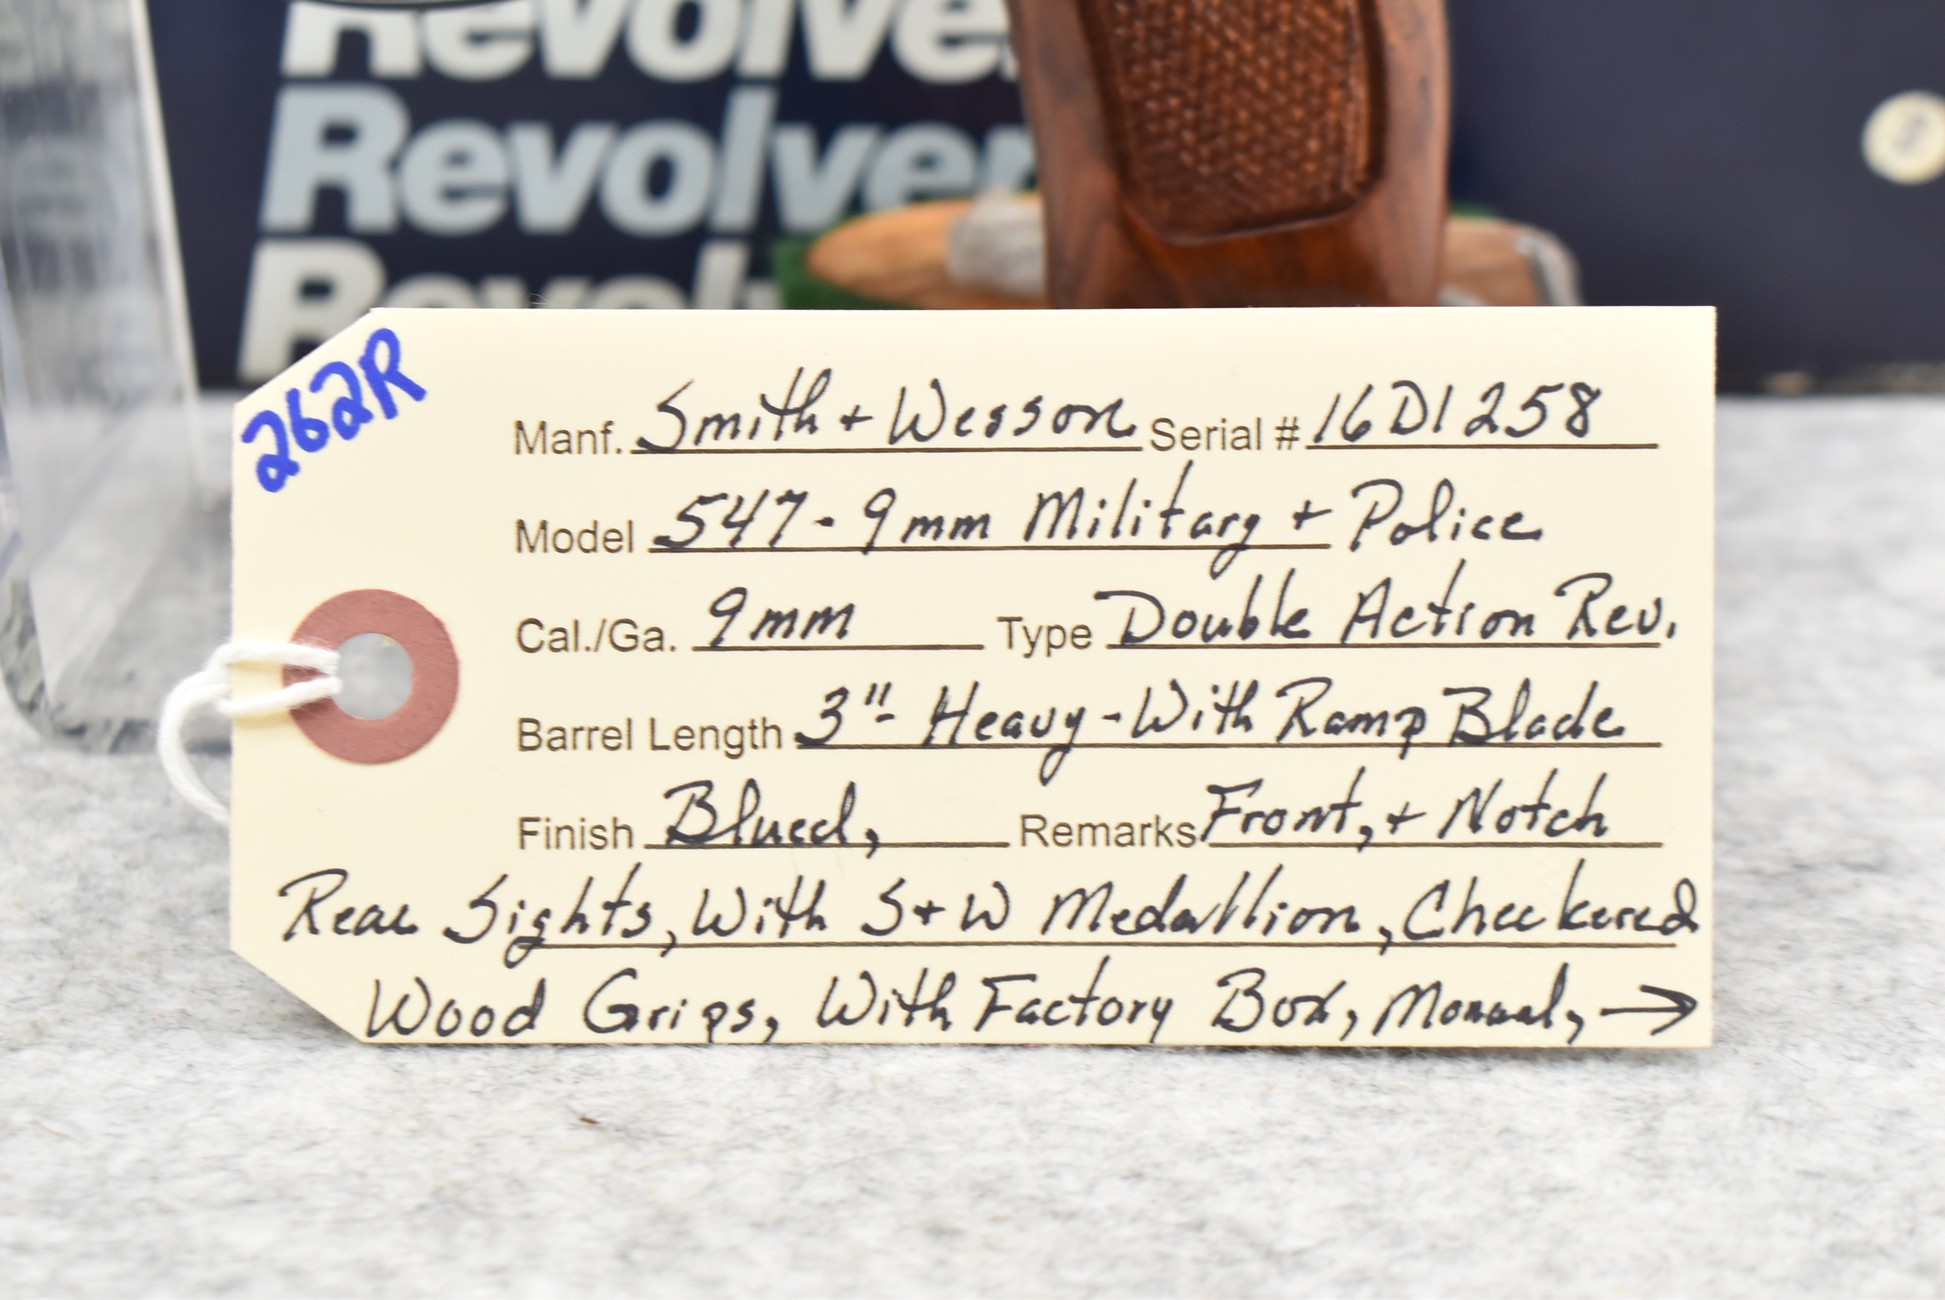 Revolver
Revolver
Revolver
262R
Manf. Smith + Wesson Serial # 16D1258
Model 547 - 9mm Military + Police
Cal./Ga. 9mm Type Double Action Rev.
Barrel Length 3" - Heavy - With Ramp Blade
Finish Blued, Remarks Front, + Notch
Rear Sights, With S+W Medallion, Checkered
Wood Grips, With Factory Box, Manual, →